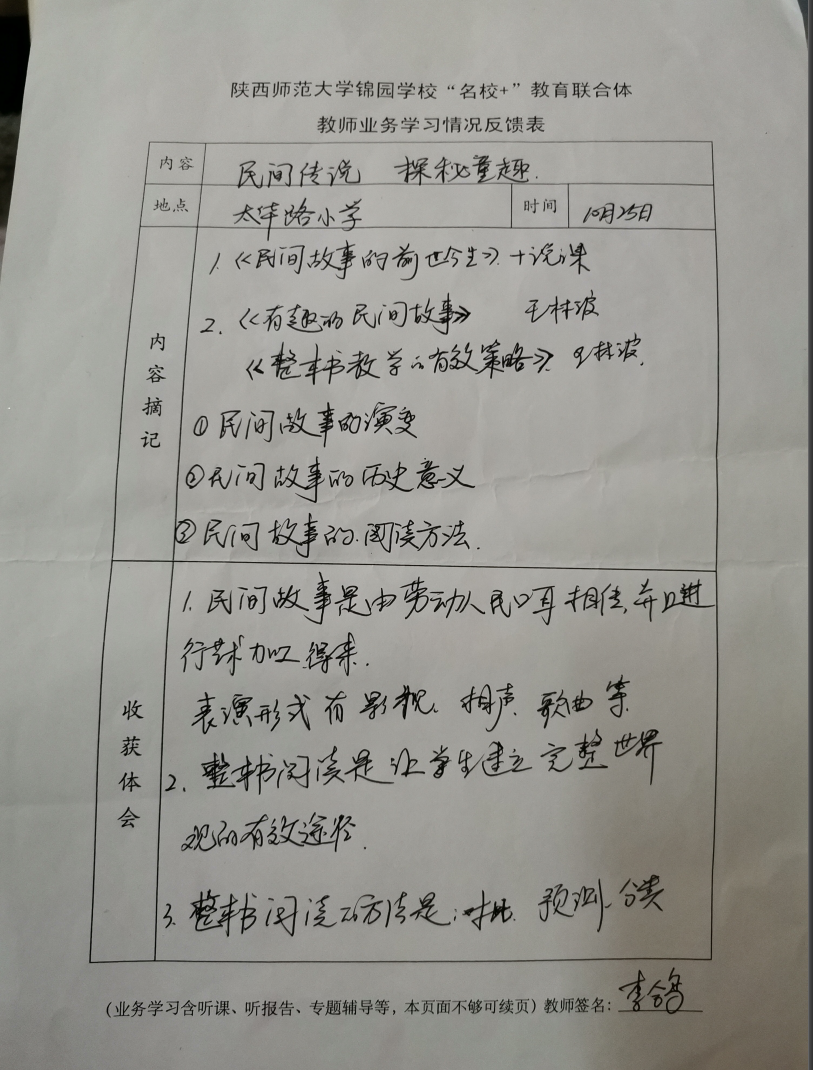 陕西师范大学锦园学校“名校+”教育联合体
教师业务学习情况反馈表
内容 民间传说 探秘童趣.
地点 太华路小学 时间 10月25日
内容摘记
1.《民间故事的前世今生》+说课
2.《有趣的民间故事》 王林波
《整本书教学的有效策略》 王林波.
①民间故事的演变
②民间故事的历史意义
③民间故事的阅读方法.
收获体会
1. 民间故事是由劳动人民口耳相传,并且进
行艺术加工得来.
表演形式有影视、相声、歌曲等
2. 整本书阅读是让学生建立完整世界
观的有效途径.
3. 整本书阅读的方法是:对比、预测、分类
(业务学习含听课、听报告、专题辅导等,本页面不够可续页)教师签名: 李